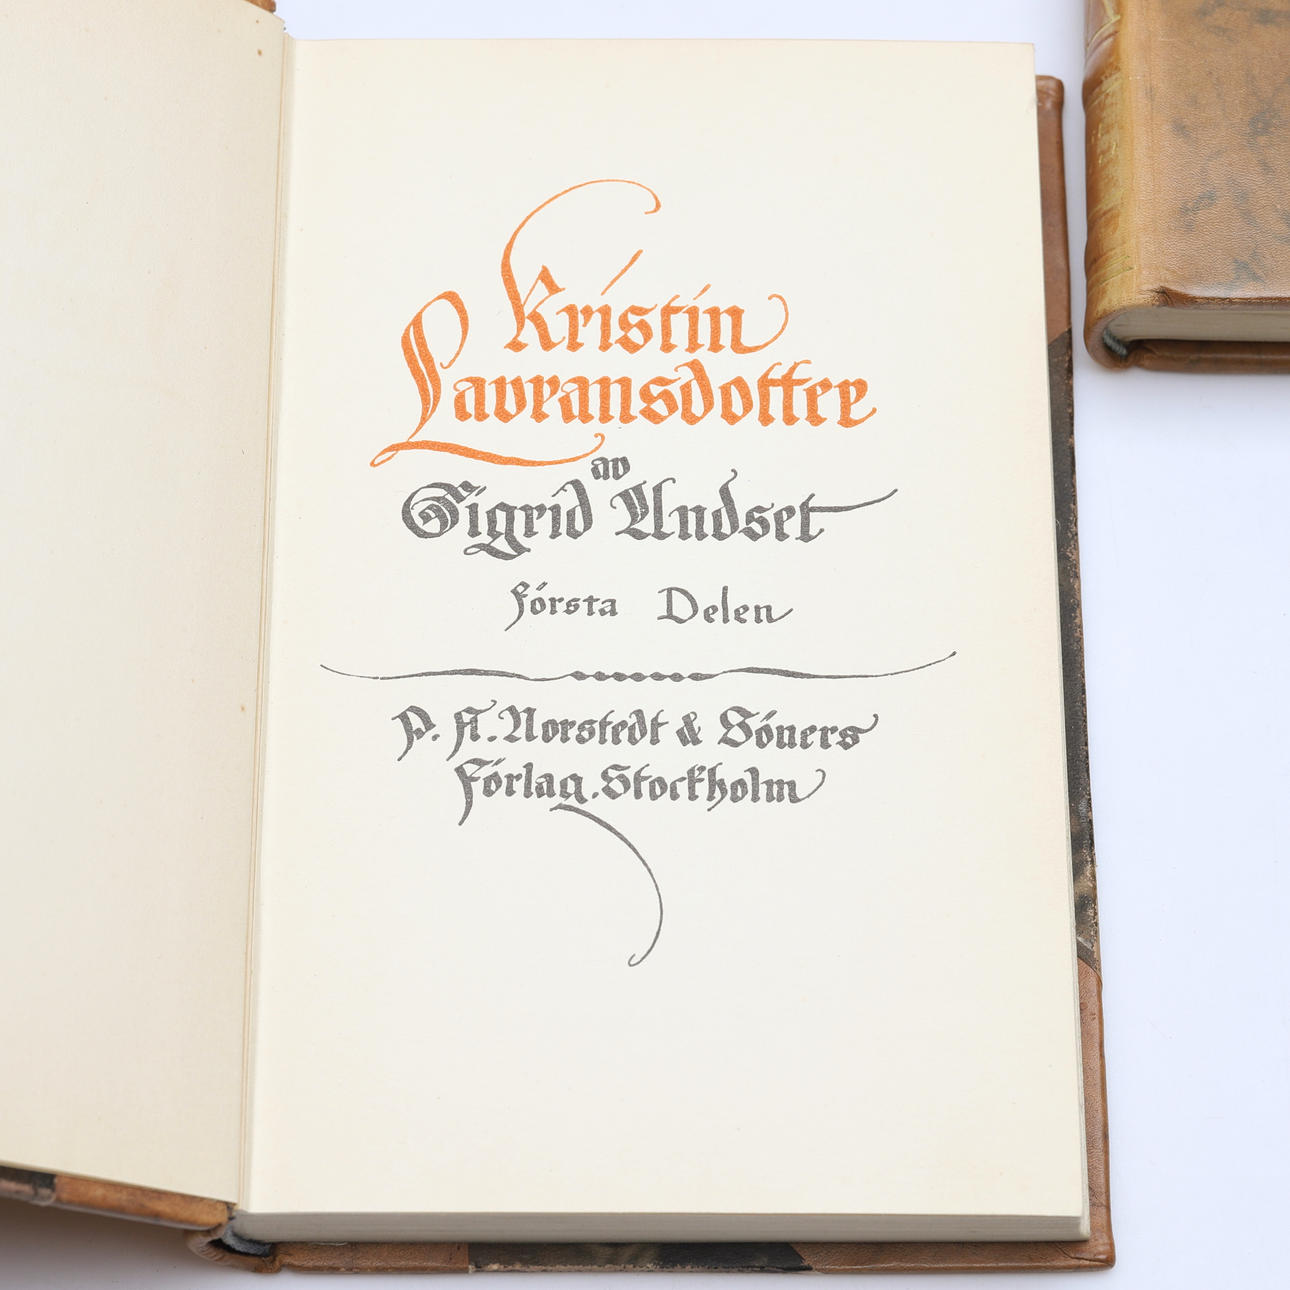 Kristin
Lavransdotter
av
Sigrid Undset
Första Delen
P. A. Norstedt & Söners
Förlag. Stockholm